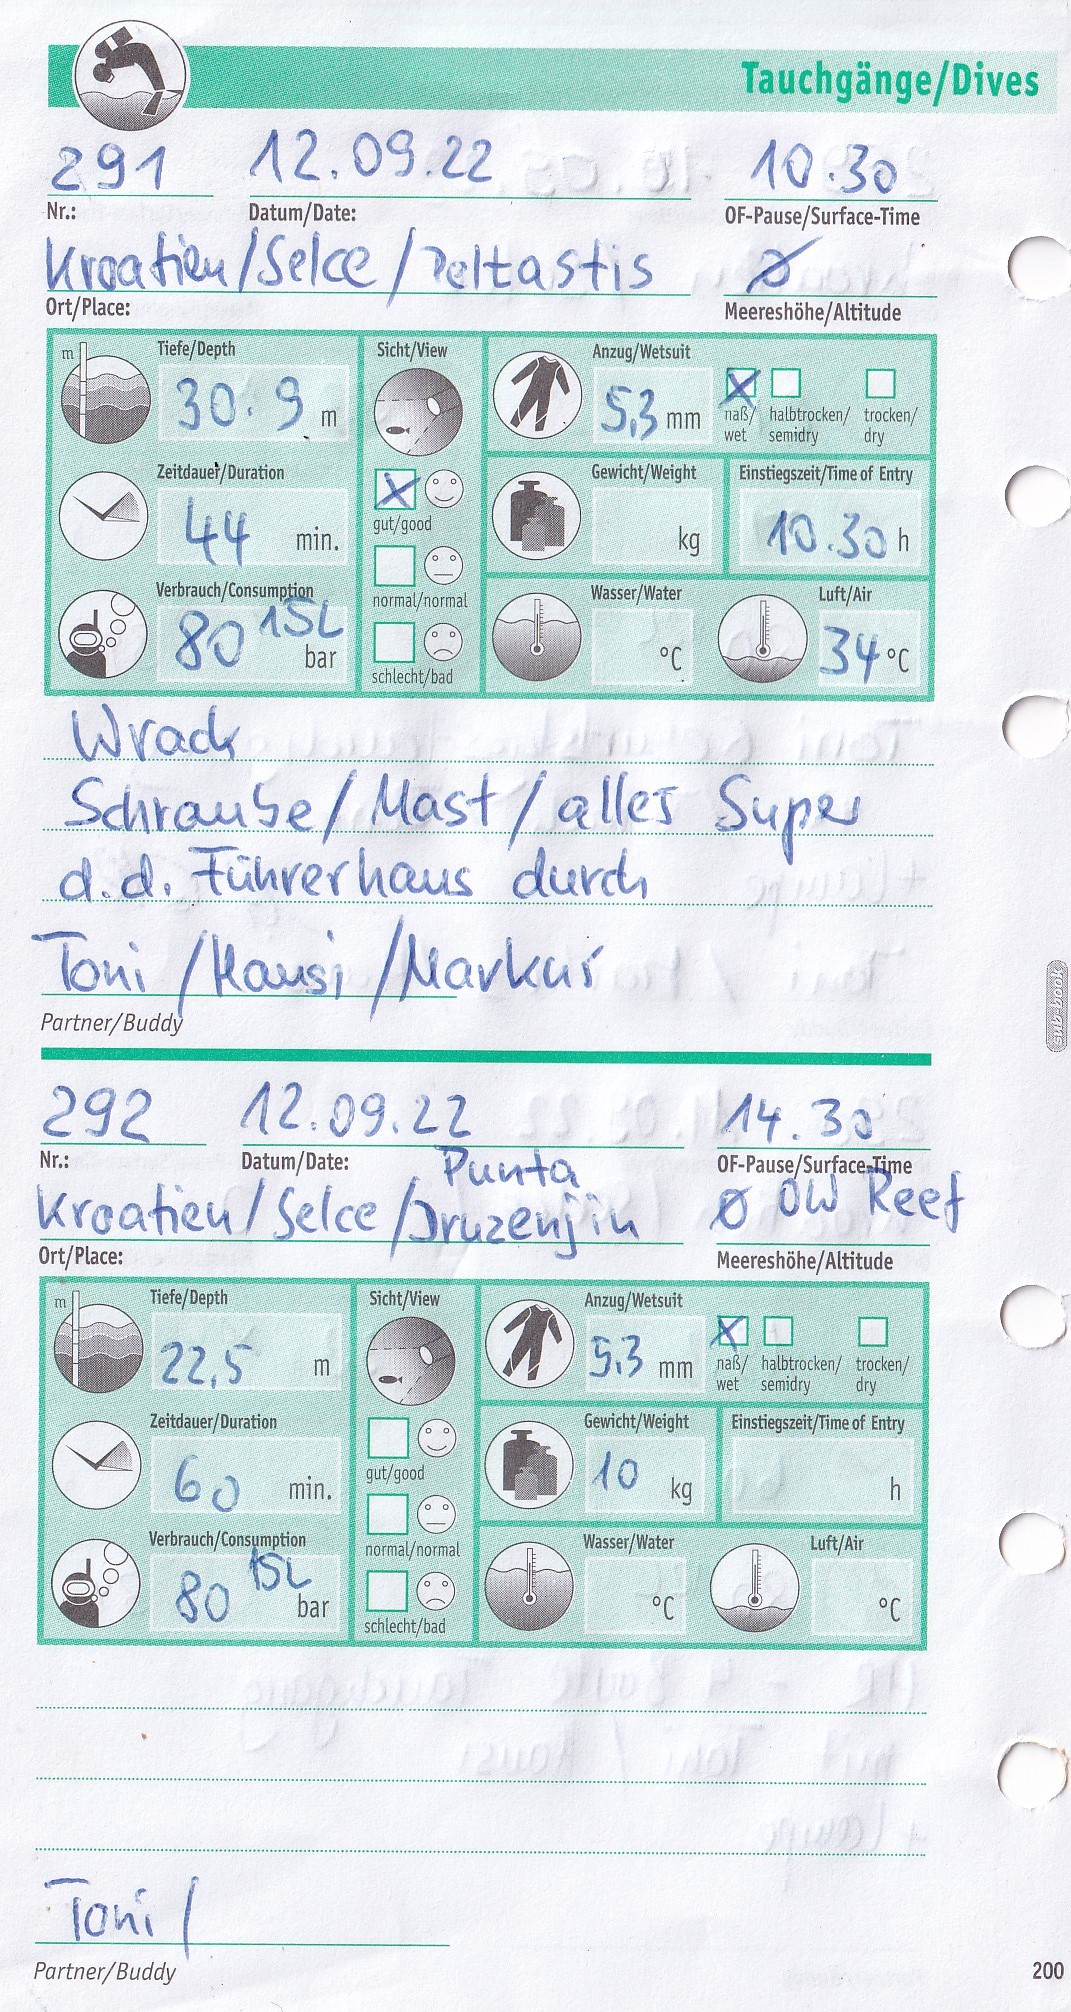 Tauchgänge/Dives
291 12.09.22 10.30
Nr.: Datum/Date: OF-Pause/Surface-Time
Kroatien/Selce/Peltastis Ø
Ort/Place: Meereshöhe/Altitude
m Tiefe/Depth Sicht/View Anzug/Wetsuit
30.9 m 5,3 mm X naß/wet halbtrocken/semidry trocken/dry
Zeitdauer/Duration Gewicht/Weight Einstiegszeit/Time of Entry
44 min. X gut/good kg 10.30 h
Verbrauch/Consumption normal/normal Wasser/Water Luft/Air
80 15L bar schlecht/bad °C 34 °C
Wrack
Schraube/Mast/alles Super
d.d. Führerhaus durch
Toni/Hansi/Markus
Partner/Buddy
sub-book
292 12.09.22 14.30
Nr.: Datum/Date: OF-Pause/Surface-Time
Punta
Kroatien/Selce/Druzenjin Ø OW Reef
Ort/Place: Meereshöhe/Altitude
m Tiefe/Depth Sicht/View Anzug/Wetsuit
22,5 m 5,3 mm X naß/wet halbtrocken/semidry trocken/dry
Zeitdauer/Duration Gewicht/Weight Einstiegszeit/Time of Entry
60 min. gut/good 10 kg h
Verbrauch/Consumption normal/normal Wasser/Water Luft/Air
80 15L bar schlecht/bad °C °C
Toni/
Partner/Buddy
200